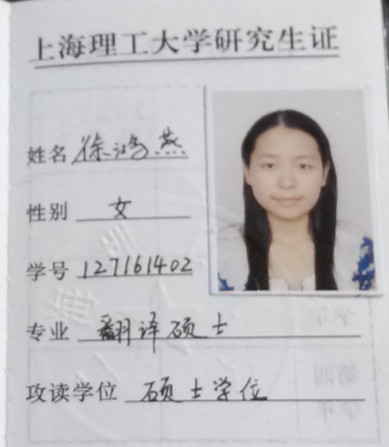 上海理工大学研究生证
姓名 徐鸿燕
性别 女
学号 127161402
专业 翻译硕士
攻读学位 硕士学位